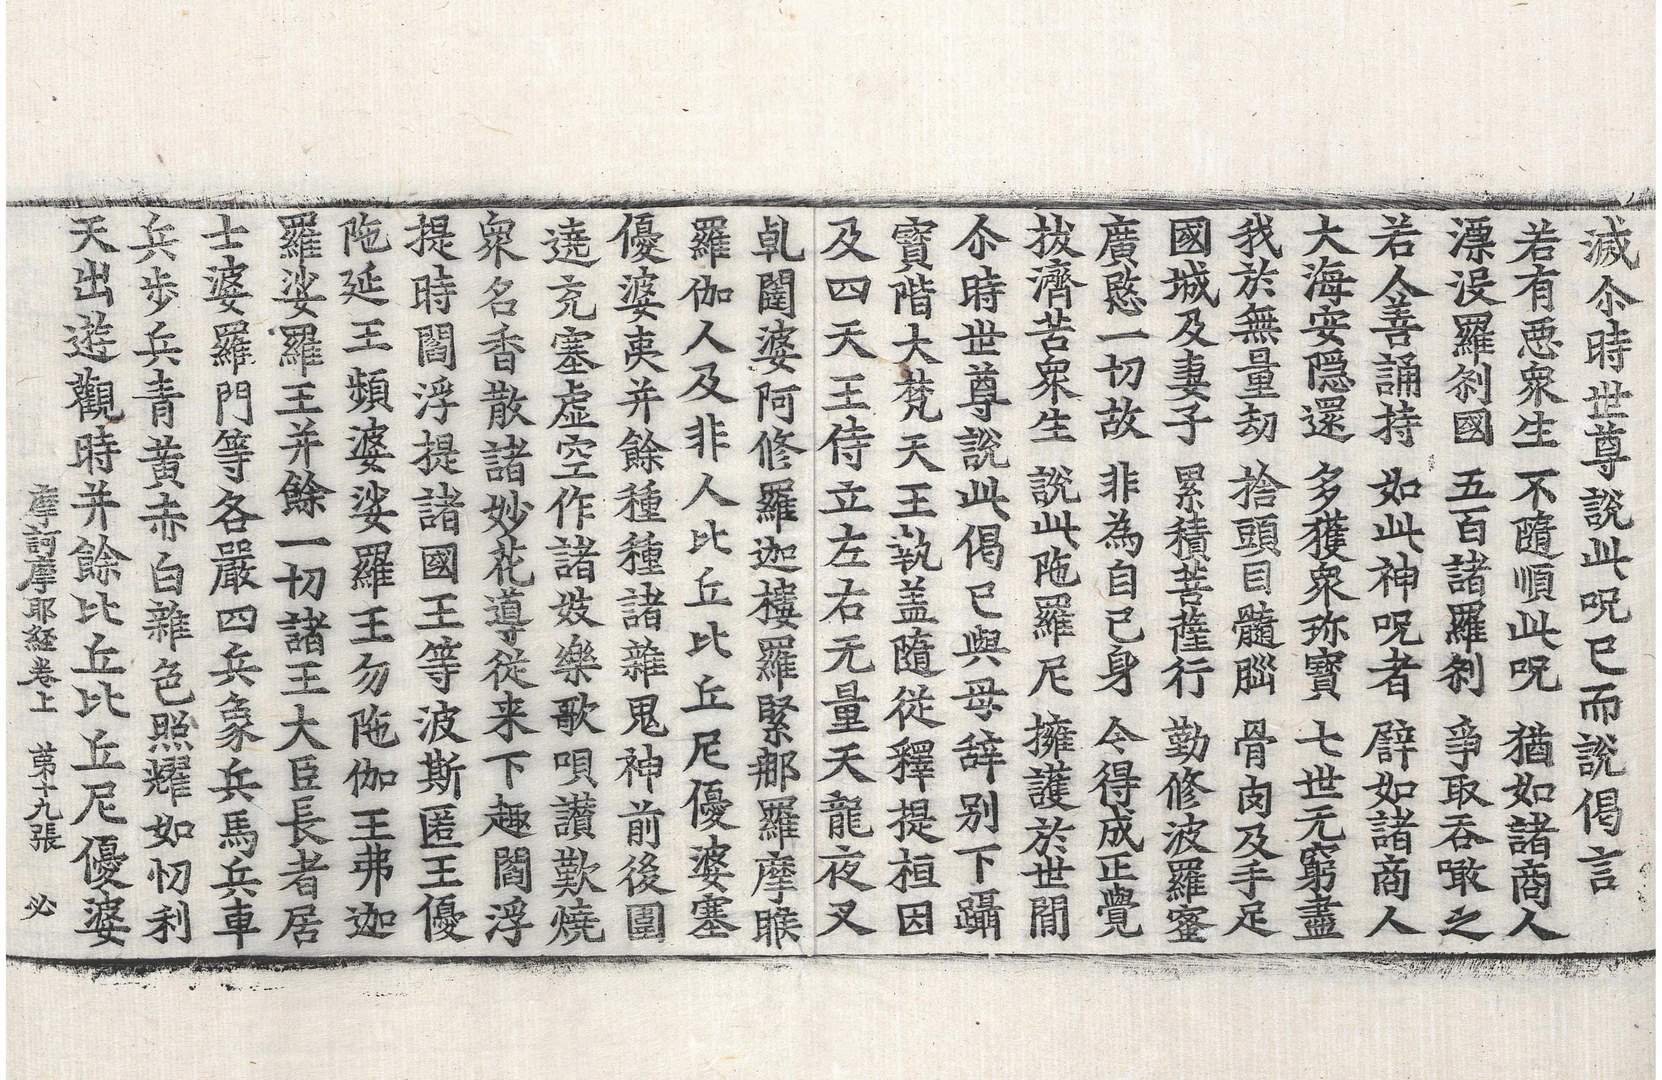 滅尒時世尊說此呪已而說偈言
若有惡衆生 不隨順此呪 猶如諸商人
漂沒羅刹國 五百諸羅刹 爭取吞噉之
若人善誦持 如此神呪者 譬如諸商人
大海安隱還 多獲衆珎寶 七世无窮盡
我於無量劫 捨頭目髓腦 骨肉及手足
國城及妻子 累積菩薩行 勤修波羅蜜
廣愍一切故 非為自己身 今得成正覺
拔濟苦衆生 說此陁羅尼 擁護於世間
尒時世尊說此偈已與母辞别下躡
寳階大梵天王執盖隨從釋提桓因
及四天王侍立左右无量天龍夜叉
乹闥婆阿修羅迦樓羅緊那羅摩睺
羅伽人及非人比丘比丘尼優婆塞
優婆夷并餘種種諸雜鬼神前後圍
遶充塞虚空作諸妓樂歌唄讃歎燒
衆名香散諸妙花導從来下趣閻浮
提時閻浮提諸國王等波斯匿王優
陁延王頻婆娑羅王勿陁伽王弗迦
羅娑羅王并餘一切諸王大臣長者居
士婆羅門等各嚴四兵象兵馬兵車
兵步兵青黄赤白雜色照耀如忉利
天出遊觀時并餘比丘比丘尼優婆
摩訶摩耶経卷上 第十九張 必